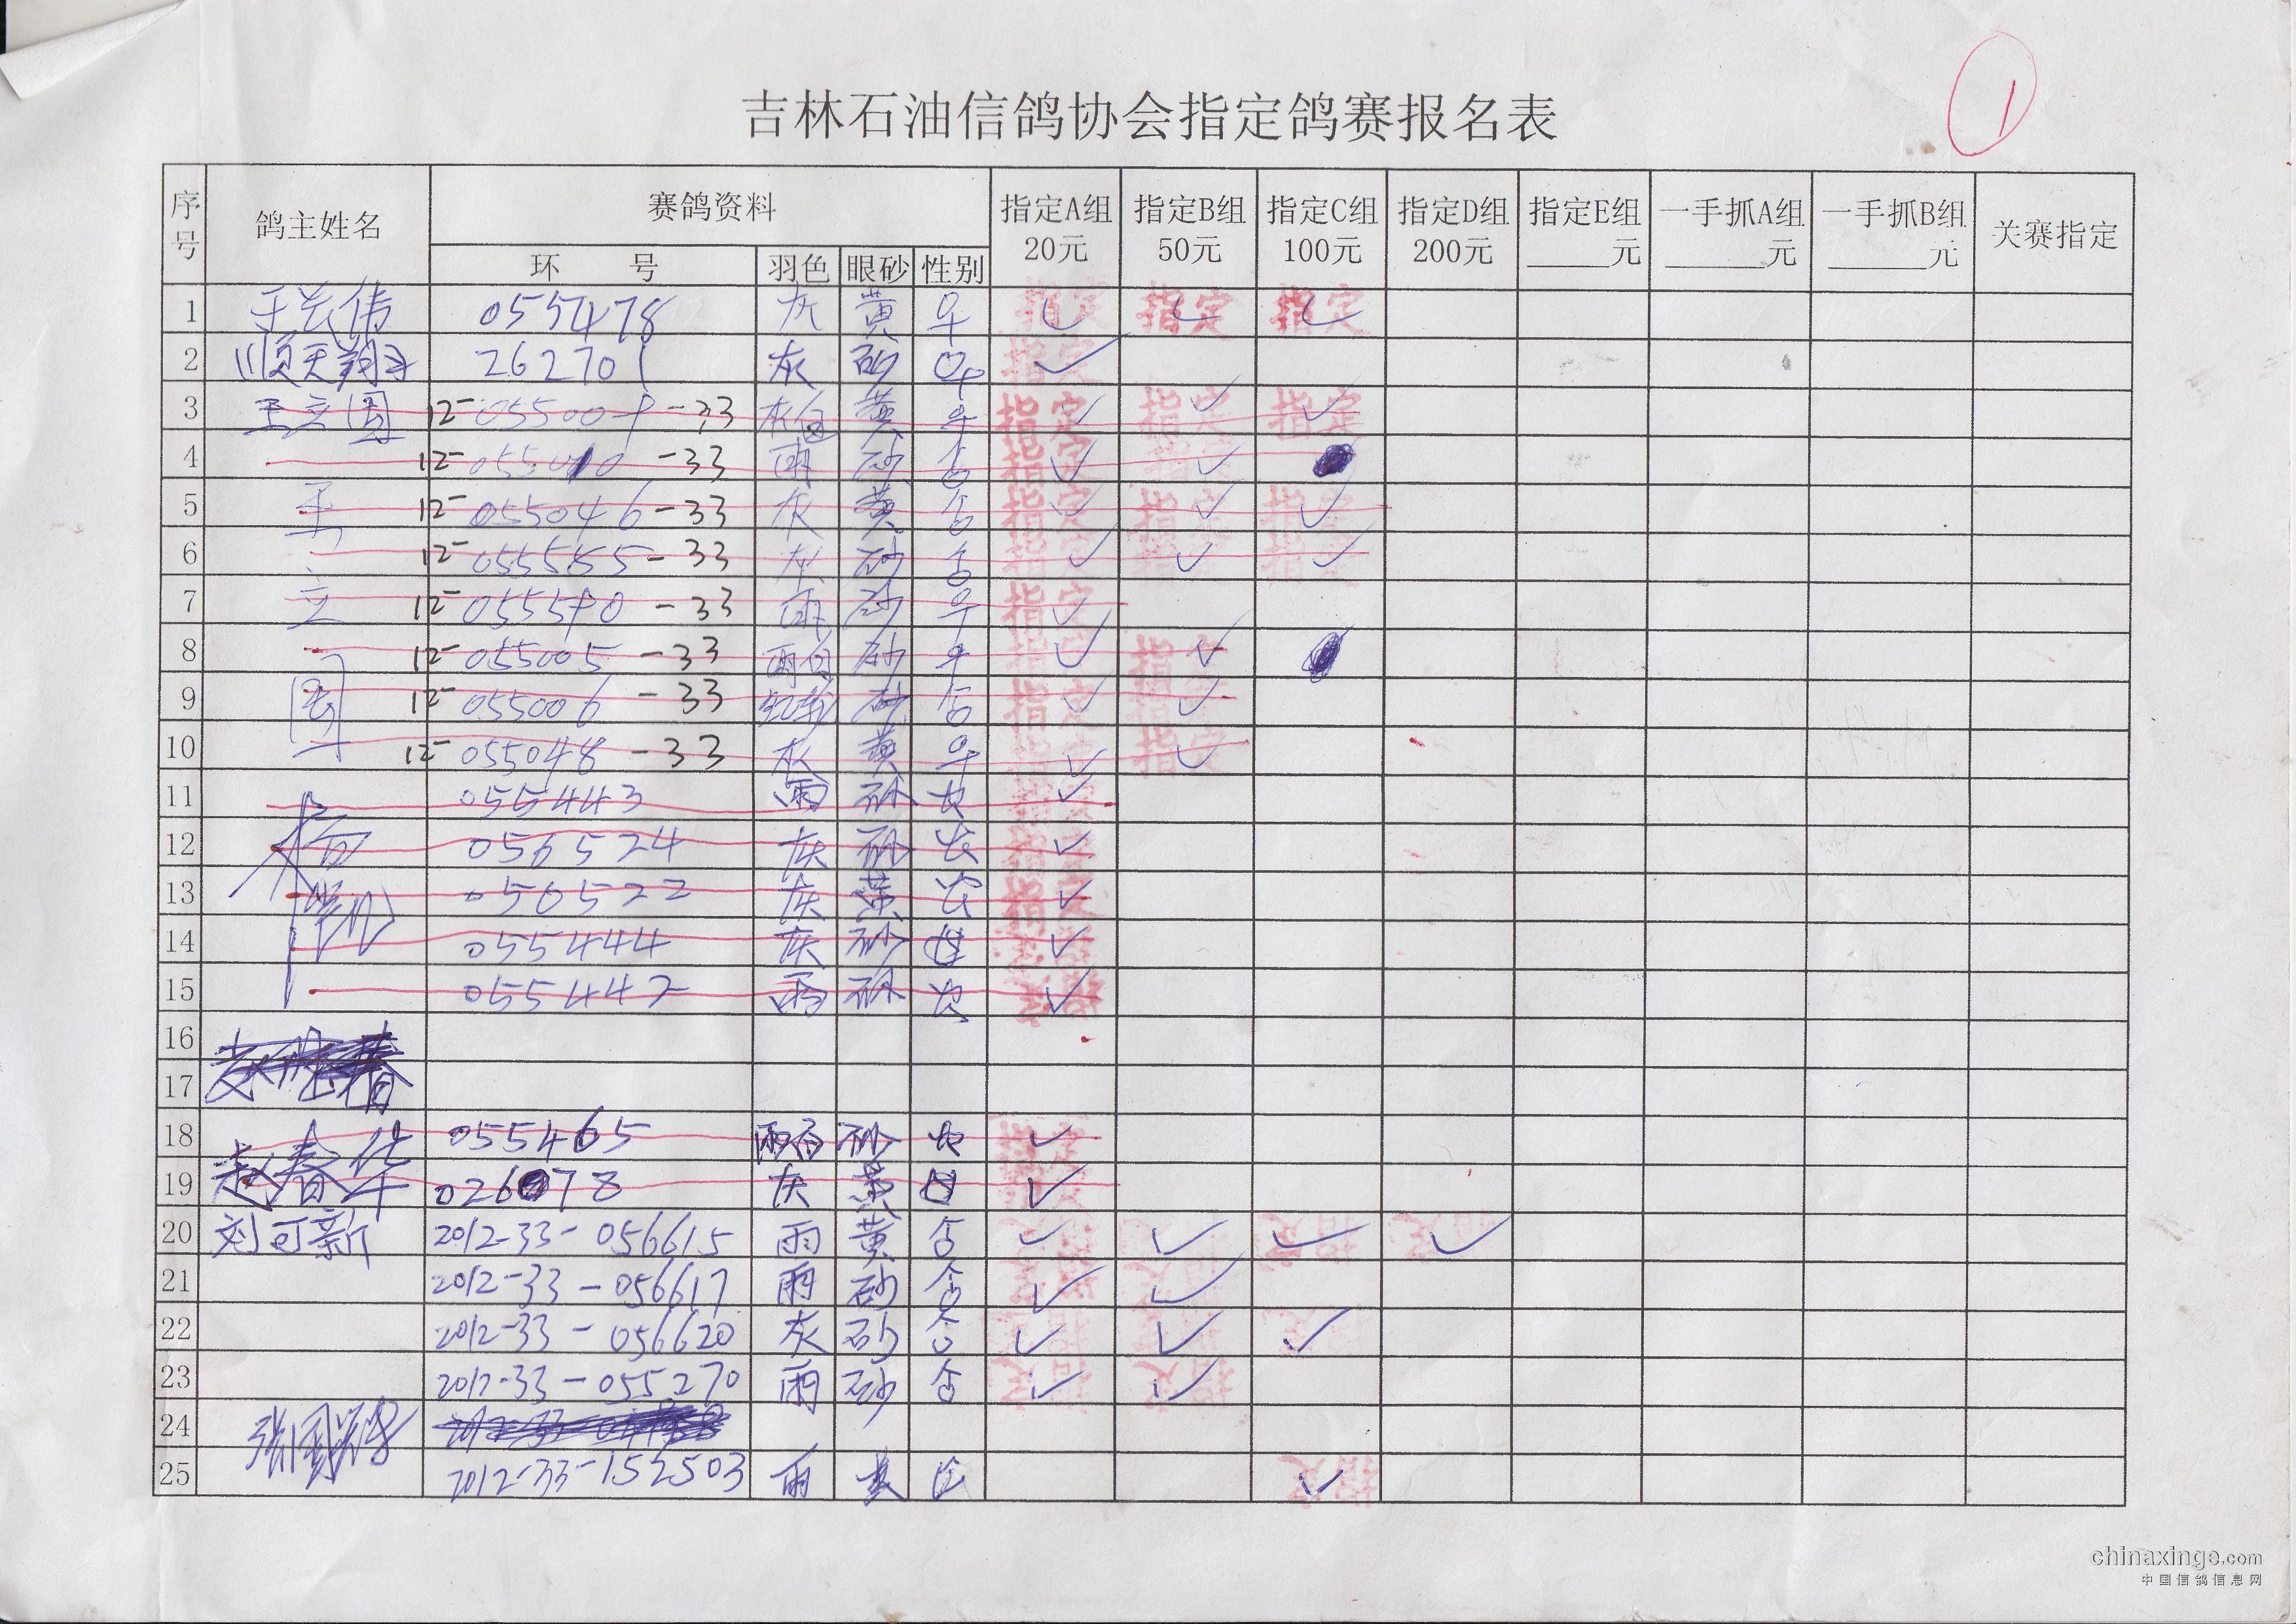 1
吉林石油信鸽协会指定鸽赛报名表
序号 鸽主姓名 赛鸽资料 指定A组 20元 指定B组 50元 指定C组 100元 指定D组 200元 指定E组 ____元 一手抓A组 ____元 一手抓B组 ____元 关赛指定
环 号 羽色 眼砂 性别
1 055478 灰 黄 ♀ 指定 ✓ 指定 ✓ 指定 ✓
2 顺天翔 262701 灰 砂 ♀ 指定 ✓
3 王立国 12-055009-33 灰白 黄 ♀ 指定 ✓ 指定 ✓ 指定 ✓
4 12-055010-33 雨 砂 指定 ✓ 指定 ✓
5 王 12-055046-33 灰 黄 指定 ✓ 指定 ✓ 指定 ✓
6 12-055555-33 灰 砂 指定 ✓ 指定 ✓ 指定 ✓
7 立 12-055590-33 雨 砂 ♀ 指定 ✓
8 12-055005-33 雨白 砂 ♀ 指定 ✓ 指定 ✓
9 国 12-055006-33 砂 指定 ✓ 指定 ✓
10 12-055048-33 灰 黄 ♀ 指定 ✓ 指定 ✓
11 055443 雨 砂 ✓
12 杨 056524 灰 砂 指定 ✓
13 056522 灰 黄 指定 ✓
14 055444 灰 砂 ✓
15 055442 雨 砂 ✓
16
17
18 055465 雨白 砂 ✓
19 赵春华 026078 灰 黄 ✓
20 刘可新 2012-33-056615 雨 黄 ✓ ✓ 指定 ✓ 指定 ✓
21 2012-33-056617 雨 砂 ✓ ✓
22 2012-33-056620 灰 砂 ✓ ✓ ✓
23 2012-33-055270 雨 砂 指定 ✓ 指定 ✓
24
25 2012-33-152503 雨 黄 指定 ✓
chinaxinge.com
中国信鸽信息网